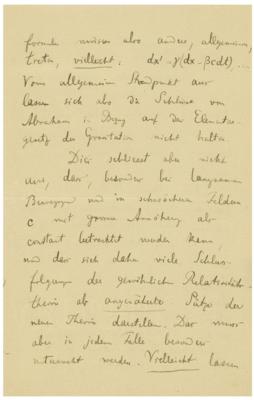 formeln müssen also andere, allgemeinere,
treten, vielleicht: dx' = γ(dx - βcdt), ...
Vom allgemeinen Standpunkt aus
lassen sich also die Schlüsse von
Abraham in Bezug auf das Elementar-
gesetz der Gravitation nicht halten.
Dies schliesst aber nicht
aus, dass, besonders bei langsamen
Bewegungen und in schwächeren Feldern
c mit grosser Annäherung als
constant betrachtet werden kann,
und dass sich daher viele Schluss-
folgerungen der gewöhnlichen Relativitäts-
theorie als angenäherte Sätze der
neuen Theorie darstellen. Das muss
aber in jedem Falle besonders
untersucht werden. Vielleicht lassen